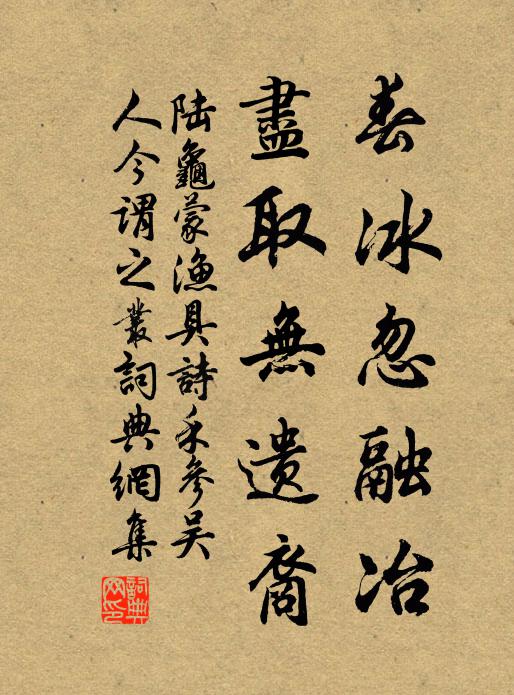 春冰忽融冶
盡取無遺裔
陆龜蒙漁具詩 禾參吴
人今謂之叢詞典網集
詞典网印